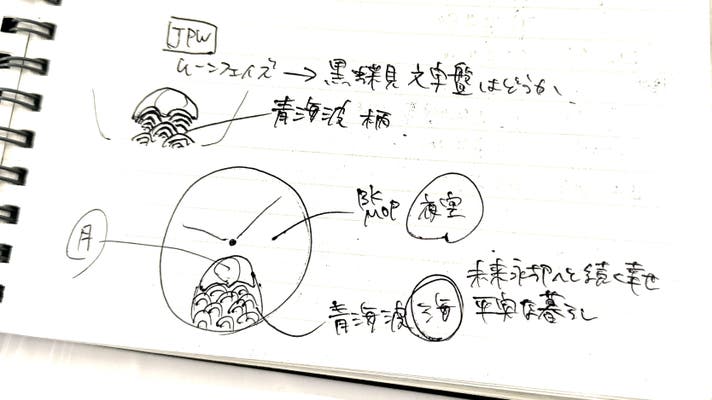 JPW
ムーンフェイズ → 黒蝶貝文字盤はどうか、
青海波柄
BK MOP 夜空
月
未来永劫へと続く幸せ
青海波 海 平安な暮らし